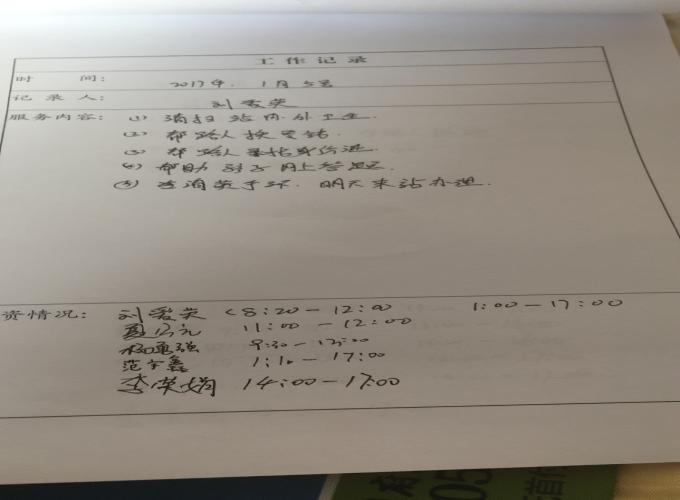 工作记录
时 间： 2017年. 1月5号
记录人： 刘爱英
服务内容： ① 清扫站内.外卫生.
② 帮路人换零钱.
③ 帮路人 身份证.
④ 帮助 网上答题.
⑤ 咨询 手环. 明天来站办理.
资情况： 刘爱英 (8:20 - 12:00 1:00 - 17:00
11:00 - 12:00
杨勇强 9:30 - 12:00
范宇鑫 1:10 - 17:00
李荣娟 14:00 - 17:00